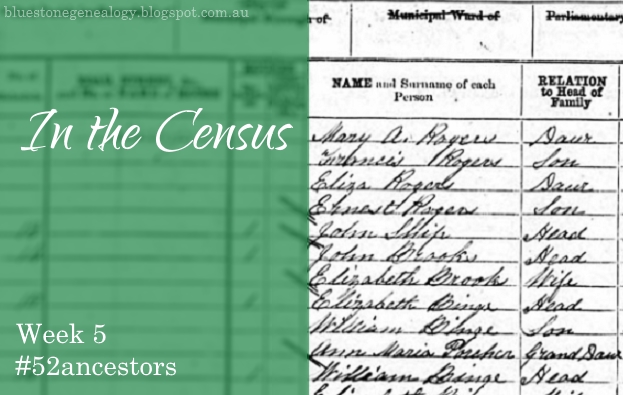 bluestonegenealogy.blogspot.com.au
of.
Municipal Ward of
Parliamentary
NAME and Surname of each
Person
RELATION
to Head of
Family
In the Census
Mary A. Rogers Daur
Francis Rogers Son
Eliza Rogers Daur
Ernest Rogers Son
John Ship Head
John Brooks Head
Elizabeth Brook Wife
Elizabeth Binge Head
William Binge Son
Ann Maria Grand Daur
William Binge Head
Week 5
#52ancestors